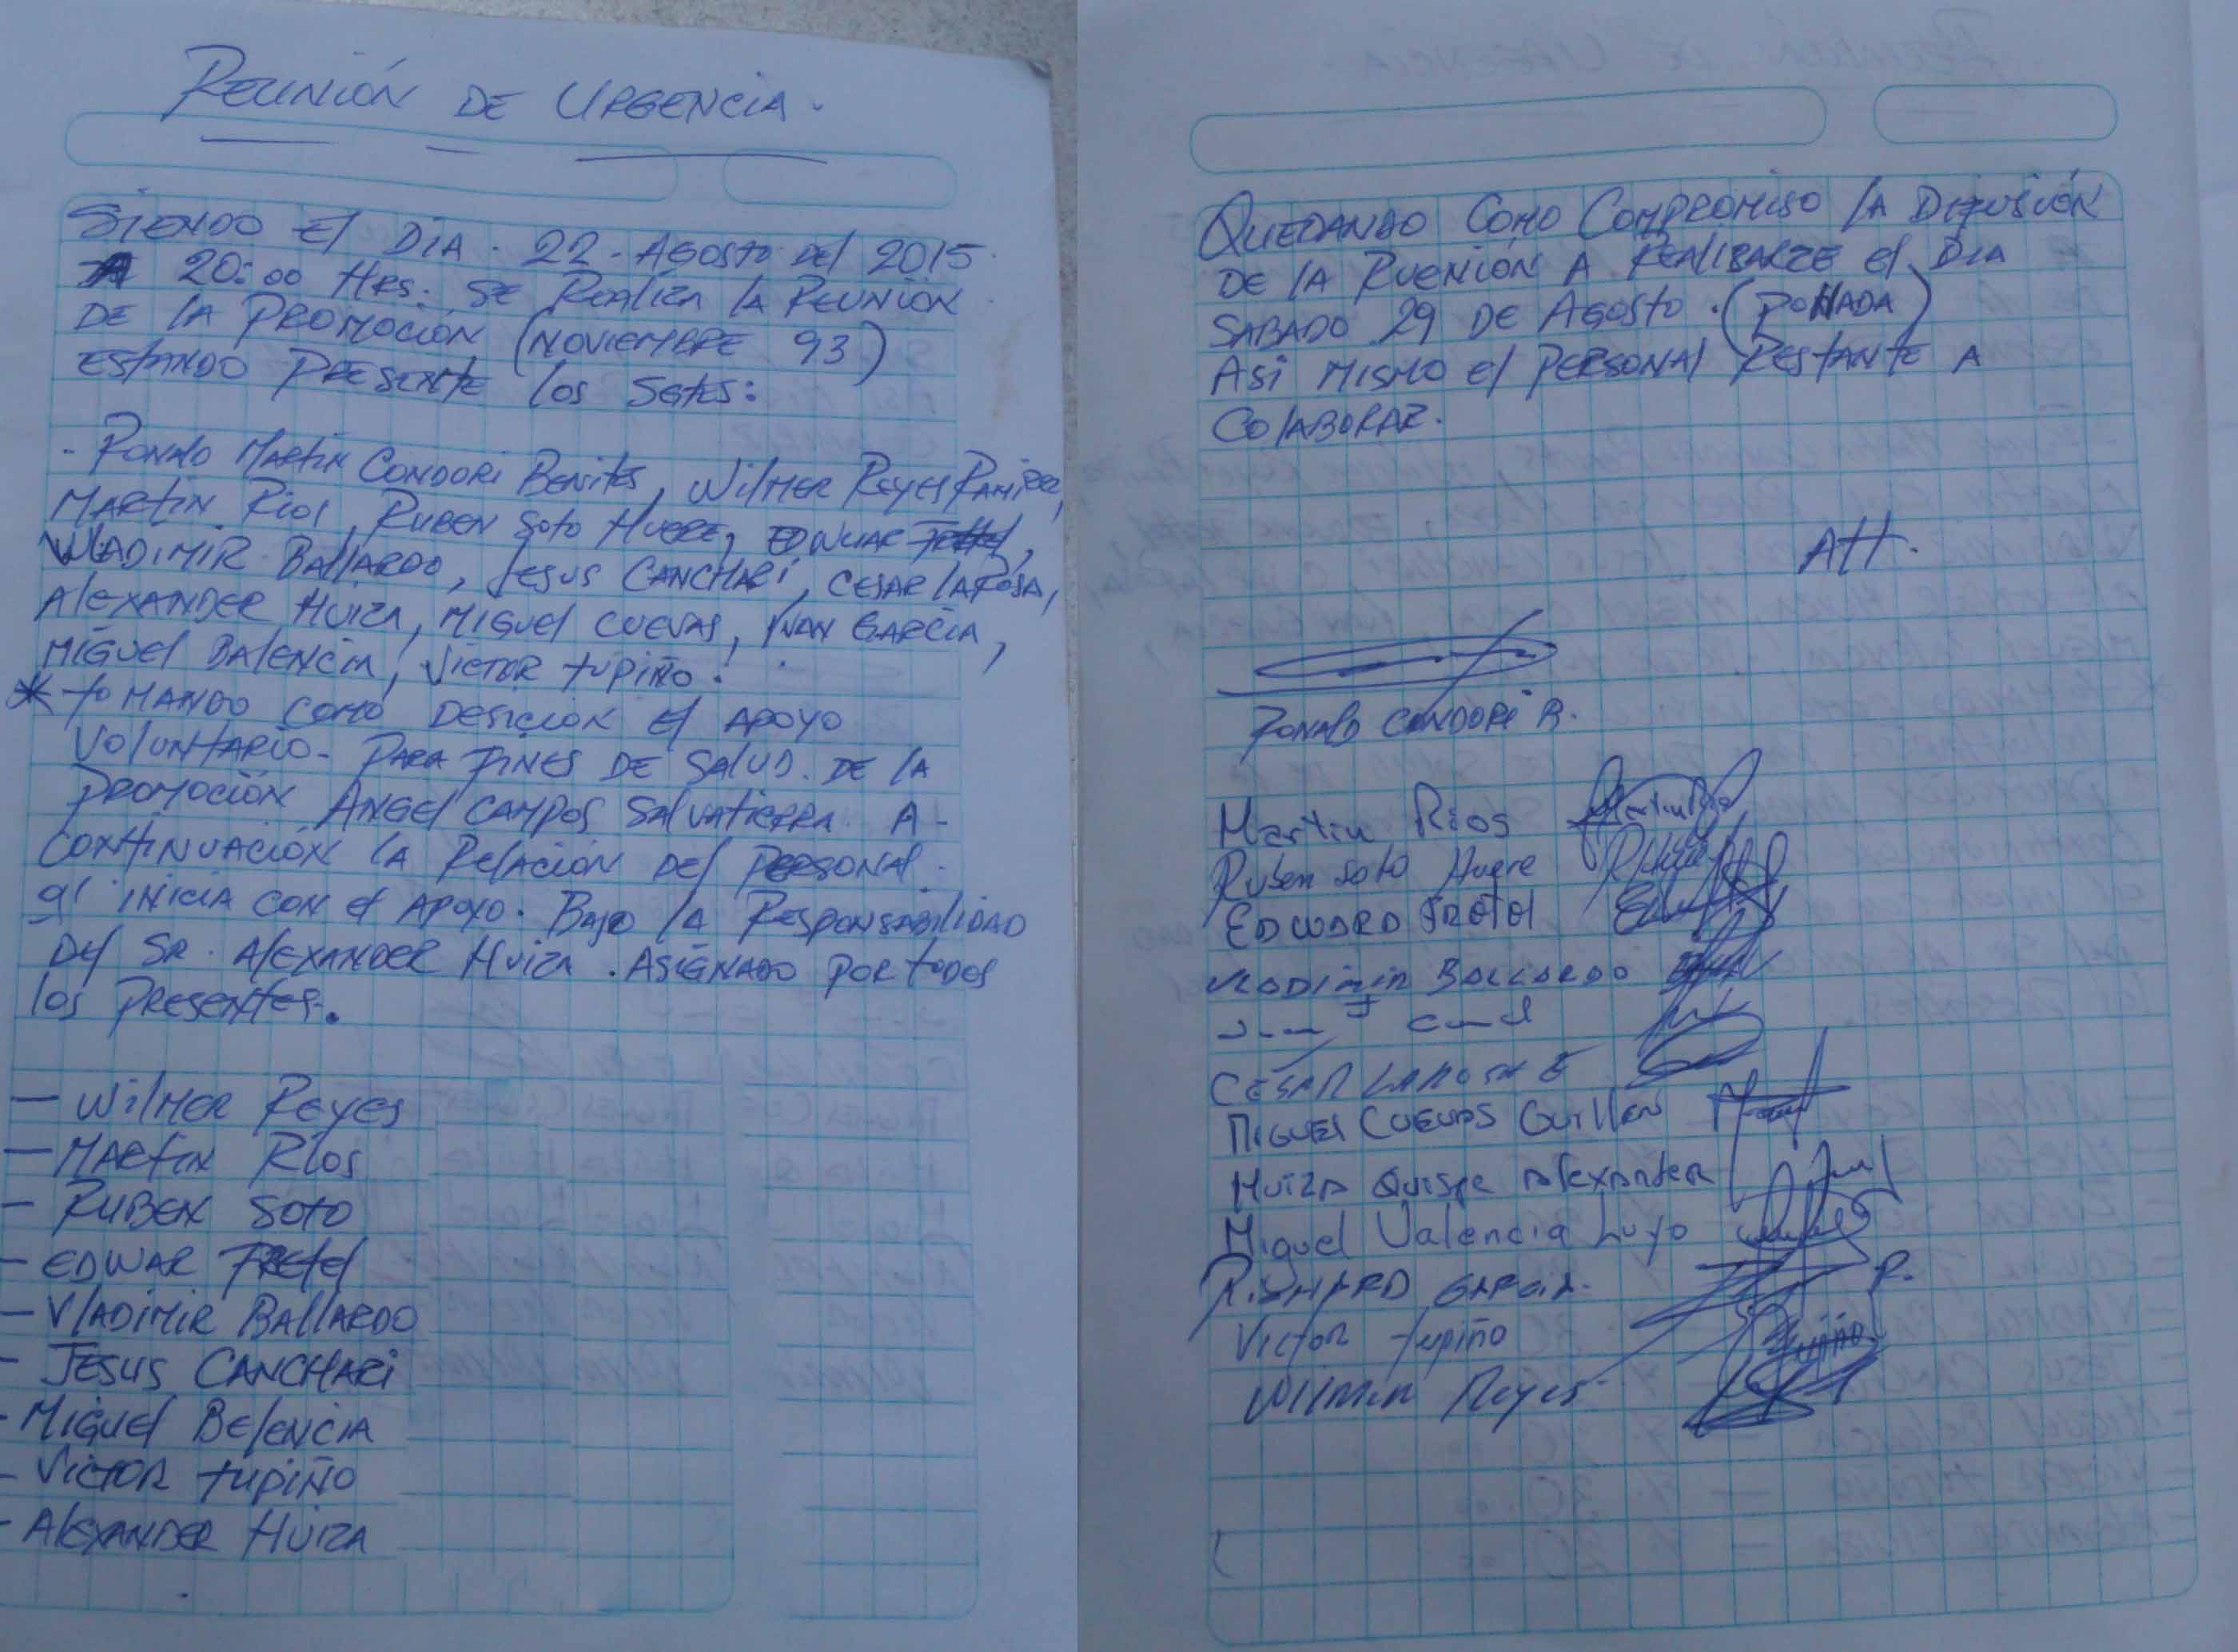 REUNIÓN DE URGENCIA.
SIENDO El DIA. 22-AGOSTO DEl 2015.
A 20:00 HRS: SE REALIZA lA REUNIÓN
DE lA PROMOCIÓN (NOVIEMBRE 93)
ESTANDO PRESENTE los SGTES:
- RONALD MARTIN CONDORI BENITES, WilMER REYES RAMIREZ,
MARTIN RIOS, RUBEN SOTO HUERE, EDWUAR FRETEL,
VlADIMIR BAllARDO, JESUS CANCHARI, CESAR lAROSA,
AlEXANDER HUIZA, MIGUEl CUEVAS, IVAN GARCIA,
MIGUEl BAlENCIA, VICTOR TUPIÑO.
* TOMANDO COMO DESICION El APOYO
VOlUNTARIO- PARA FINES DE SAlUD. DE lA
PROMOCIÓN ANGEl CAMPOS SAlVATIERRA. A-
CONTINUACIÓN lA RElACIÓN DEl PERSONAl.
q' INICIA CON El APOYO. BAJO lA RESPONSABILIDAD
DEl SR. AlEXANDER HUIZA. ASIGNADO POR TODOS
los PRESENTES.
- WilMER REYES
- MARTIN RIOS
- RUBEN SOTO
- EDWAR FRETEl
- VlADIMIR BAllARDO
- JESUS CANCHARI
- MIGUEl BElENCIA
- VICTOR TUPIÑO
- AlEXANDER HUIZA
QUEDANDO COMO COMPROMISO lA DIFUSIÓN
DE lA RUENIÓN A REALIBARZE El DIA
SABADO 29 DE AGOSTO. (POllADA)
ASI MISMO El PERSONAl RESTANTE A
COlABORAR.
Att.
RONALD CONDORI B.
Martin Rios
Ruben Soto Huere
EDWARD FRETEl
VLADIMIR BALLARDO
CESAR LAROSA E
MIGUEl CUEVAS GUILLEN
HUIZA QUISPE AlEXANDER
Miguel Valencia Luyo
RISHARD GARCIA.
Victor Tupiño
WILMER Reyes